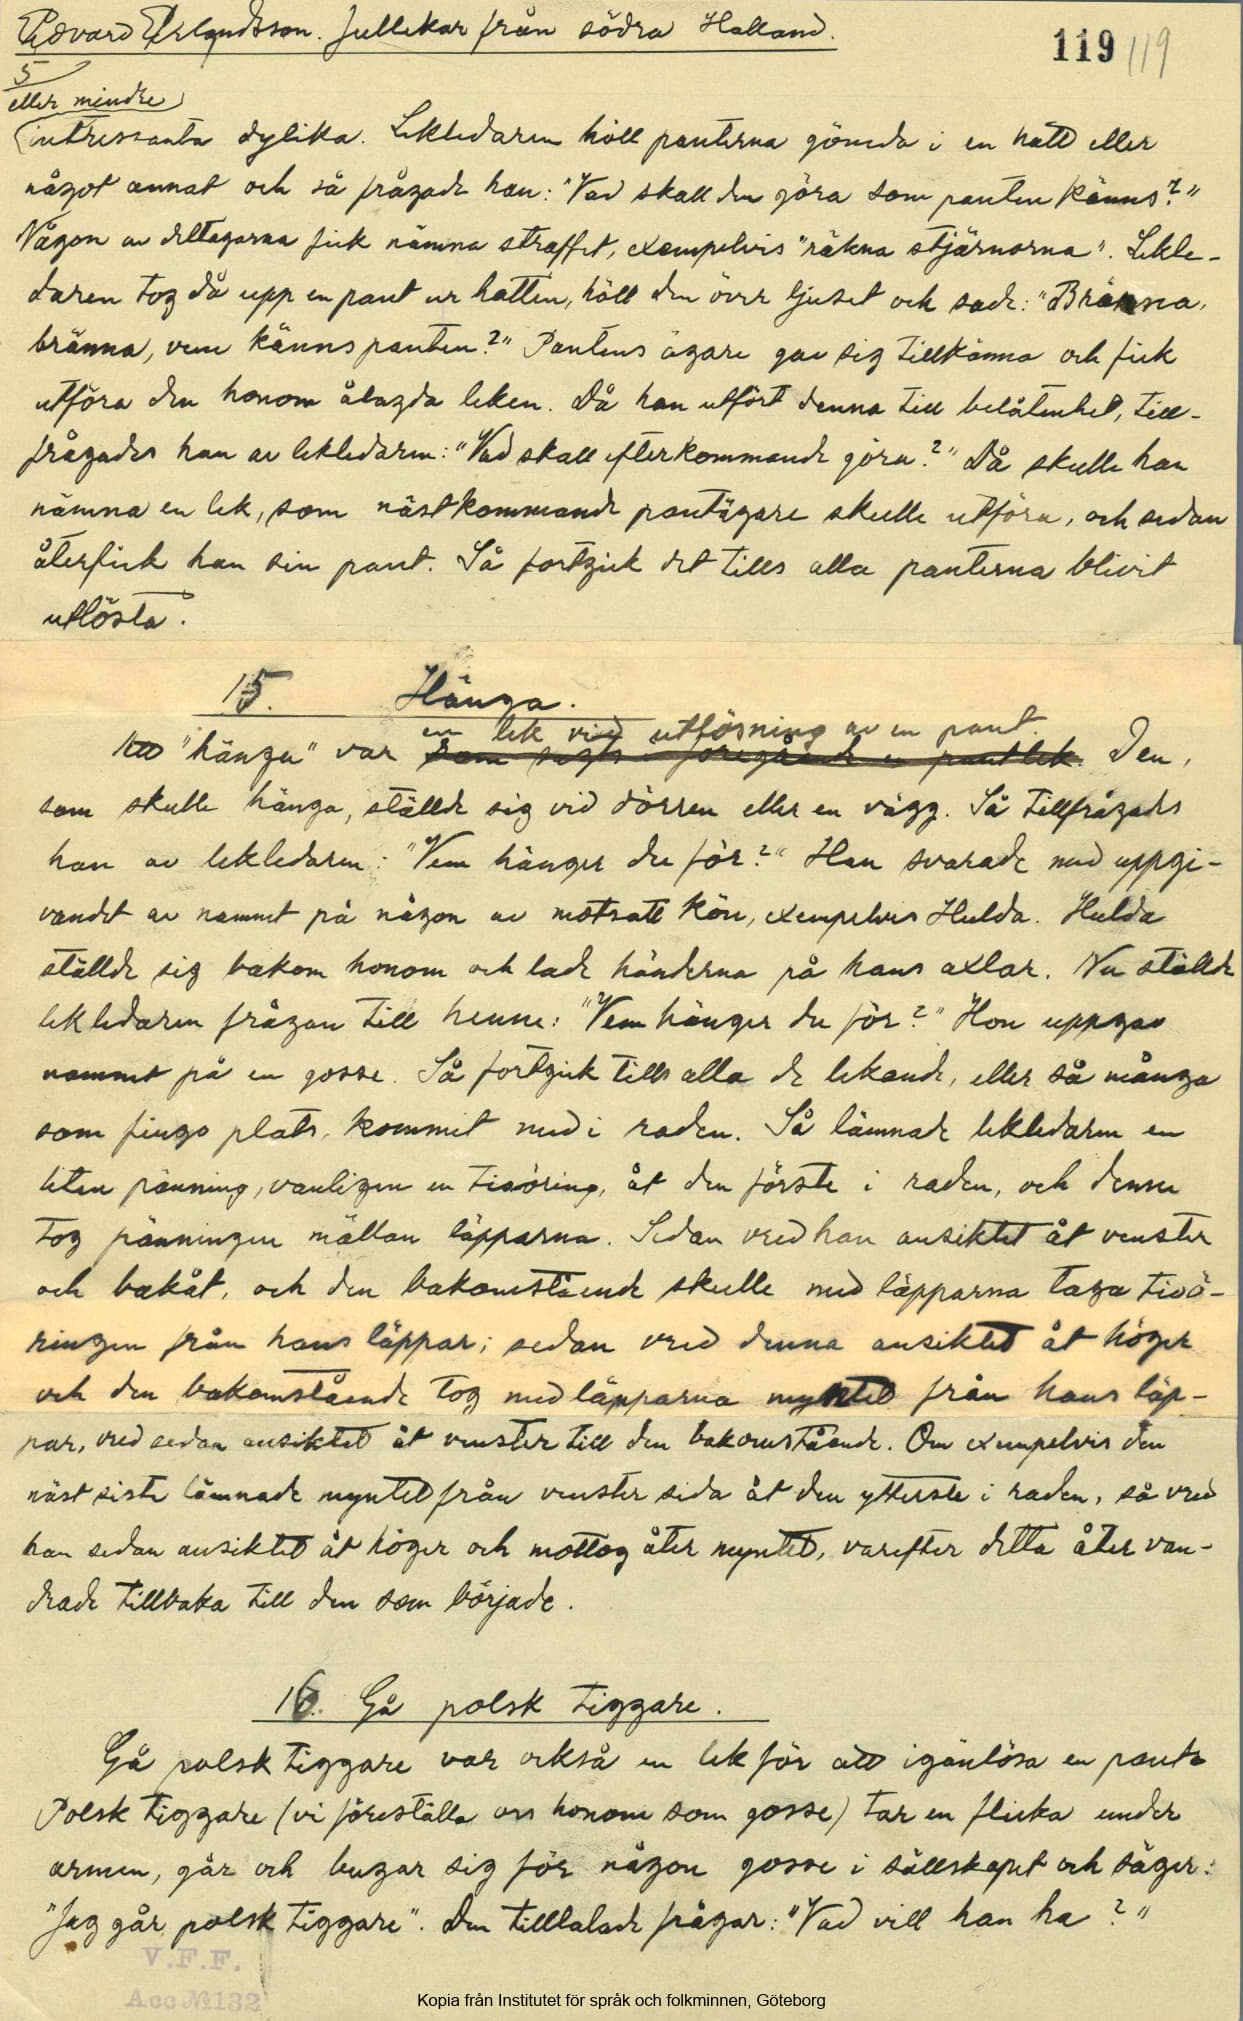 Edvard Erlandsson. Jullekar från södra Halland.
119 119
5
eller mindre
intressanta dylika. Lekledaren höll panterna gömda i en hatt eller
något annat och så frågade han: "Vad skall den göra som panten känns?"
Någon av deltagarna fick nämna straffet, exempelvis "räkna stjärnorna". Lekle-
daren tog då upp en pant ur hatten, höll den över ljuset och sade: "Bränna,
bränna, vem känns panten?" Pantens ägare gav sig tillkänna och fick
utföra den honom ålagda leken. Då han utfört denna till belåtenhet, till-
frågades han av lekledaren: "Vad skall efterkommande göra?" Då skulle han
nämna en lek, som nästkommande pantägare skulle utföra, och sedan
återfick han sin pant. Så fortgick det tills alla panterna blivit
utlösta.
15. Hänga.
en lek vid utlösning av en pant.
Att "hänga" var som sagts i föregående en pantlek. Den,
som skulle hänga, ställde sig vid dörren eller en vägg. Så tillfrågades
han av lekledaren: "Vem hänger du för?" Han svarade med uppgi-
vandet av namnet på någon av motsatt kön, exempelvis Hulda. Hulda
ställde sig bakom honom och lade händerna på hans axlar. Nu ställde
lekledaren frågan till henne: "Vem hänger du för?" Hon uppgav
namnet på en gosse. Så fortgick tills alla de lekande, eller så många
som fingo plats, kommit med i raden. Så lämnade lekledaren en
liten pänning, vanligen en tioöring, åt den förste i raden, och denne
tog pänningen mällan läpparna. Sedan vred han ansiktet åt venster
och bakåt, och den bakomstående skulle med läpparna taga tioö-
ringen från hans läppar; sedan vred denna ansiktet åt höger
och den bakomstående tog med läpparna myntet från hans läp-
par, vred sedan ansiktet åt venster till den bakomstående. Om exempelvis den
näst siste lämnade myntet från venster sida åt den ytterste i raden, så vred
han sedan ansiktet åt höger och mottog åter myntet, varefter detta åter van-
drade tillbaka till den som började.
16. Gå polsk tiggare.
Gå polsk tiggare var också en lek för att igänlösa en pant.
Polsk tiggare (vi föreställa oss honom som gosse) tar en flicka under
armen, går och bugar sig för någon gosse i sällskapet och säger:
"Jag går polsk tiggare". Den tilltalade frågar: "Vad vill han ha?"
V.F.F.
Acc № 132
Kopia från Institutet för språk och folkminnen, Göteborg